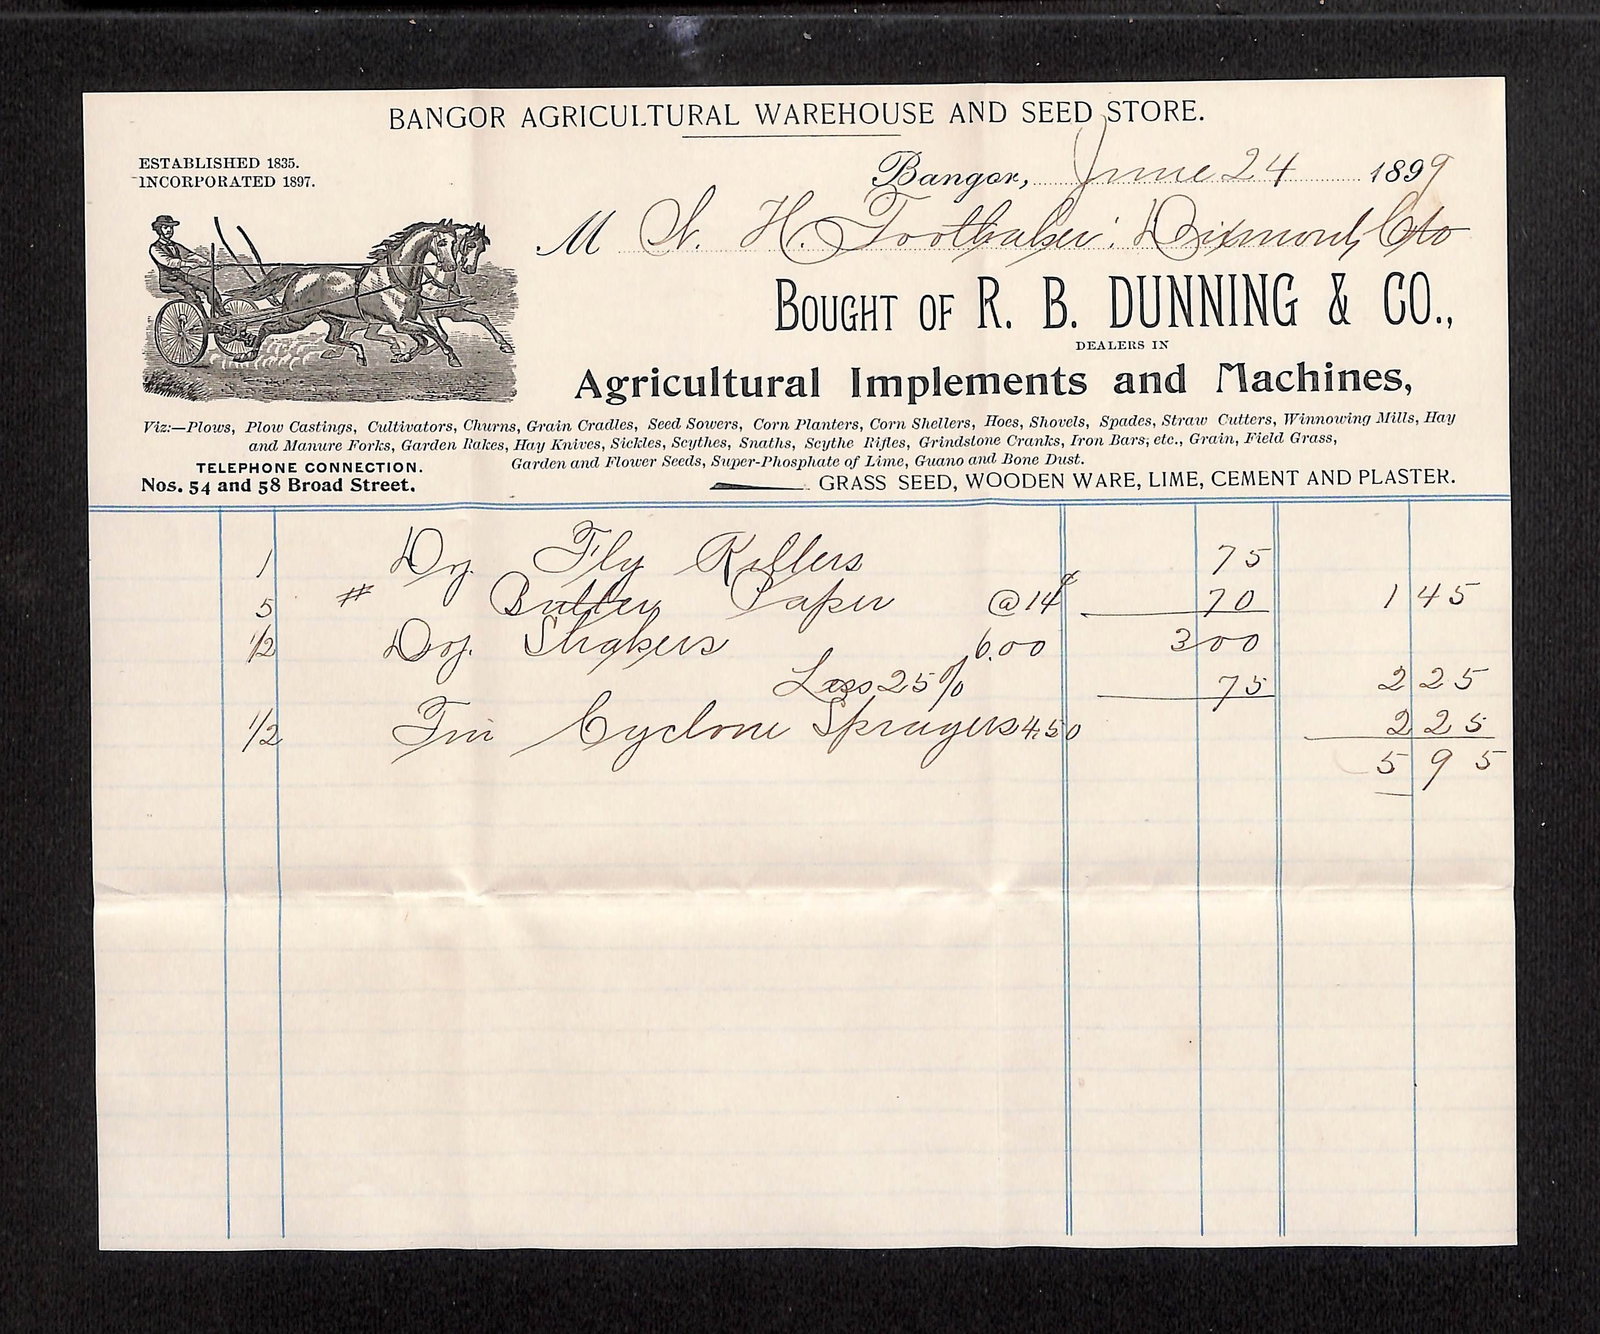 BANGOR AGRICULTURAL WAREHOUSE AND SEED STORE.
ESTABLISHED 1835.
INCORPORATED 1897.
Bangor, June 24 1899
M S. H. Toothaker. Dixmont, Ctr
BOUGHT OF R. B. DUNNING & CO.,
DEALERS IN
Agricultural Implements and Machines,
Viz:—Plows, Plow Castings, Cultivators, Churns, Grain Cradles, Seed Sowers, Corn Planters, Corn Shellers, Hoes, Shovels, Spades, Straw Cutters, Winnowing Mills, Hay
and Manure Forks, Garden Rakes, Hay Knives, Sickles, Scythes, Snaths, Scythe Rifles, Grindstone Cranks, Iron Bars, etc., Grain, Field Grass,
Garden and Flower Seeds, Super-Phosphate of Lime, Guano and Bone Dust.
TELEPHONE CONNECTION.
Nos. 54 and 58 Broad Street.
GRASS SEED, WOODEN WARE, LIME, CEMENT AND PLASTER.
1 Dz. Fly Killers 75
5 # Butter Paper @ 14¢ 70 1 45
1/2 Doz. Shakers 6.00 3 00
Less 25% 75 2 25
1/2 Tin Cyclone Sprayers 4.50 2 25
5 95